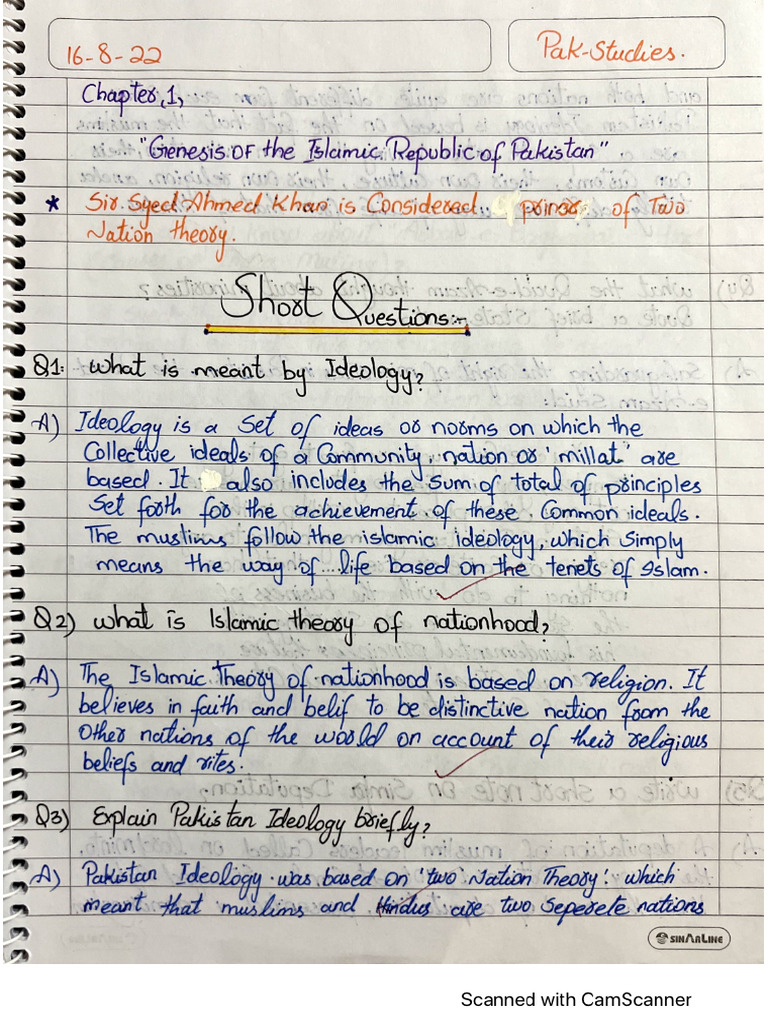 16-8-22
Pak-Studies.
Chapter,1,
"Genesis OF the Islamic Republic of Pakistan"
* Sir. Syed Ahmed Khan is Considered of Two
Nation theory.
Short Questions:-
Q1: what is meant by Ideology?
A) Ideology is a set of ideas or norms on which the
Collective ideals of a Community, nation or 'millat" are
based. It also includes the sum of total of principles
Set forth for the achievement of these Common ideals.
The muslims follow the islamic ideology, which simply
means the way of life based on the tenets of Islam.
Q2) what is Islamic theory of nationhood?
A) The Islamic Theory of nationhood is based on religion. It
believes in faith and belif to be distinctive nation from the
Other nations of the world on account of their religious
beliefs and rites.
Q3) Explain Pakistan Ideology briefly?
A) Pakistan Ideology was based on 'two Nation Theory! which
meant that muslims and Hindus are two seperete nations
SINARLINE
Scanned with CamScanner